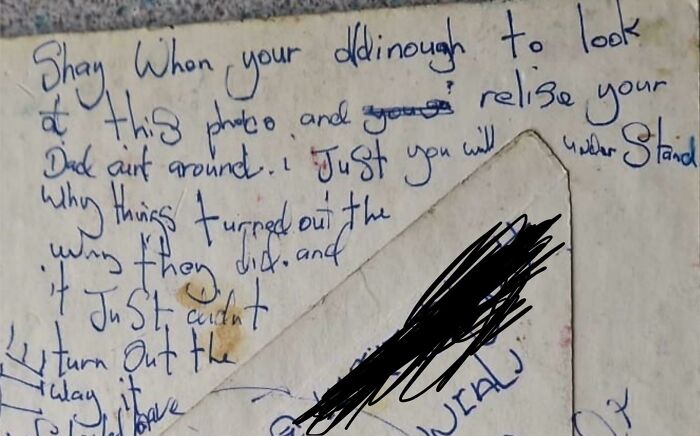 Shay When your oldinough to look
at this photo and relise your
Dad aint around.. Just you will under Stand
Why things turned out the
way they did. and
it Just didnt
turn Out the
way it
have